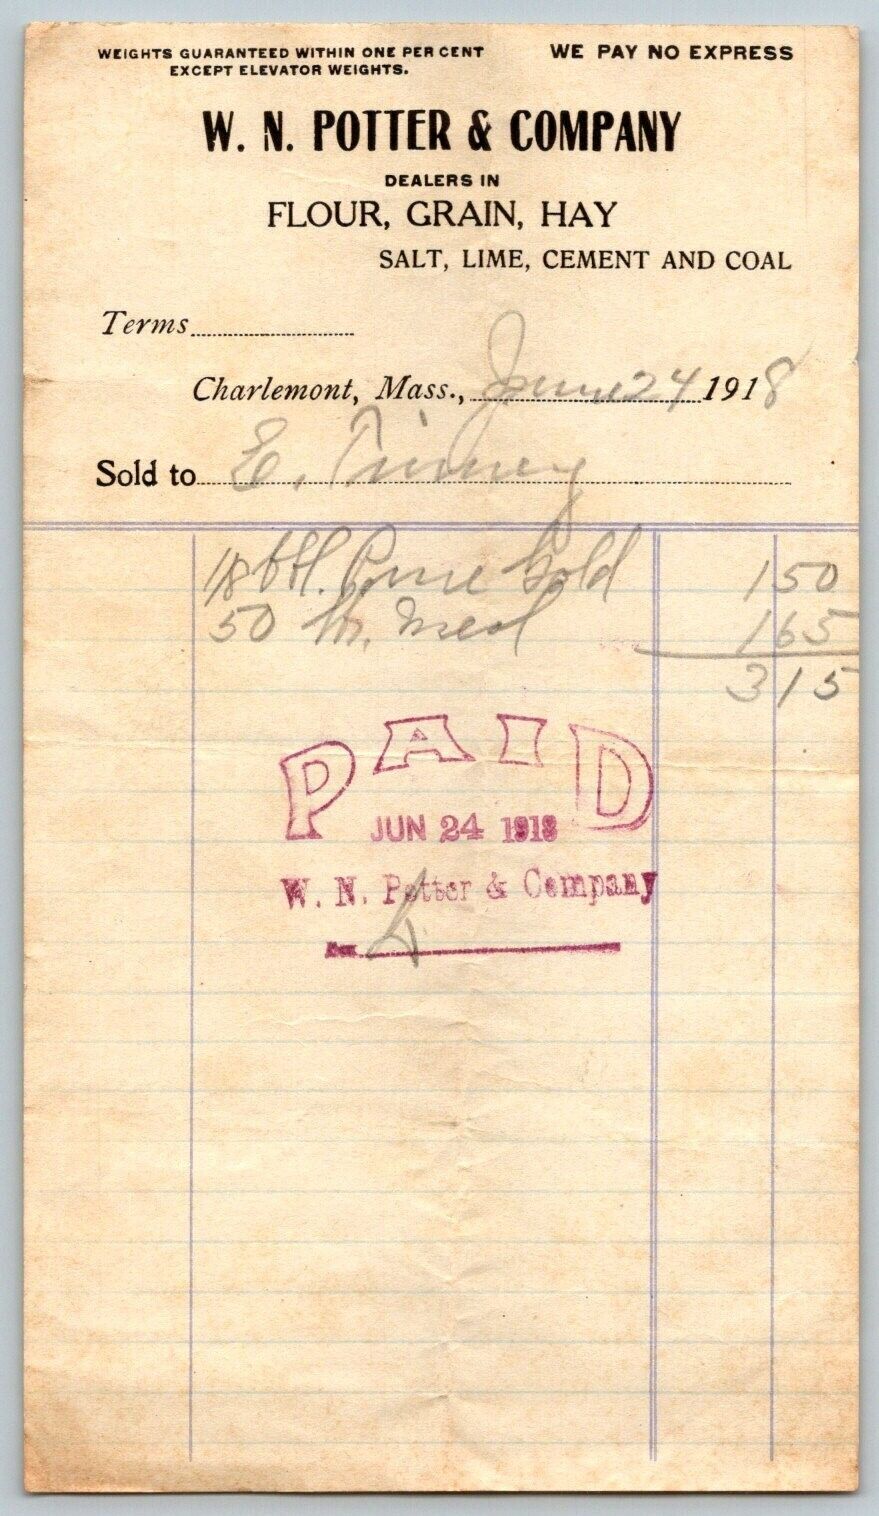 WEIGHTS GUARANTEED WITHIN ONE PER CENT
EXCEPT ELEVATOR WEIGHTS.
WE PAY NO EXPRESS
W. N. POTTER & COMPANY
DEALERS IN
FLOUR, GRAIN, HAY
SALT, LIME, CEMENT AND COAL
Terms
Charlemont, Mass., June 24 1918
Sold to E. Tinney
1/8 bbl. Pure Gold 1 50
50 lb. Meal 1 65
3 15
PAID
JUN 24 1918
W. N. Potter & Company